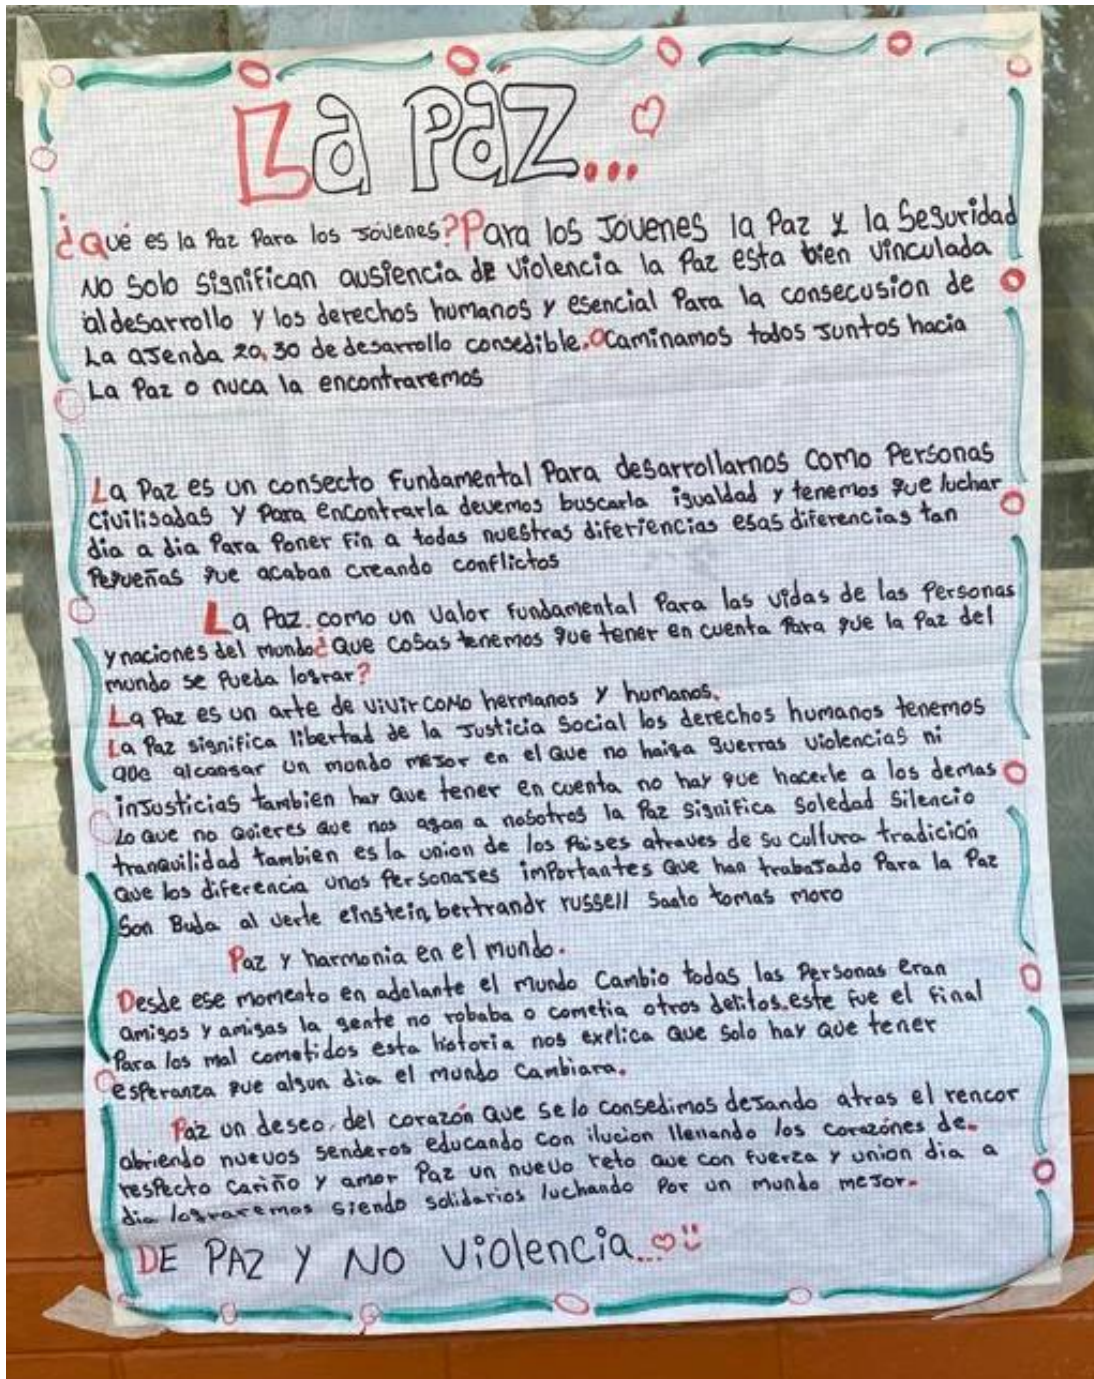 La Paz...
¿Qué es la Paz Para los Jóvenes? Para los Jovenes la Paz y la Seguridad
No Solo Significan ausiencia de violencia la Paz esta bien vinculada
al desarrollo y los derechos humanos y esencial Para la consecusion de
La aJenda 20,30 de desarrollo consedible. O Caminamos todos Juntos hacia
La Paz o nuca la encontraremos
La Paz es un consecto Fundamental Para desarrollarnos Como Personas
Civilisadas y Para encontrarla devemos buscarla igualdad y tenemos que luchar
dia a dia Para Poner Fin a todas nuestras diferiencias esas diferencias tan
Pequeñas que acaban creando conflictos
La Paz como un Valor Fundamental Para las vidas de las Personas
y naciones del mundo ¿Que Cosas tenemos que tener en cuenta Para que la Paz del
mundo se Pueda lograr?
La Paz es un arte de vivir como hermanos y humanos.
La Paz significa libertad de la Justicia Social los derechos humanos tenemos
que alcansar un mundo meJor en el Que no haiga guerras violencias ni
inJusticias tambien hay Que tener en cuenta no hay que hacerle a los demas
Lo Que no Quieres Que nos agan a nosotros la Paz Significa Soledad Silencio
tranquilidad tambien es la union de los Paises atraves de su cultura tradición
Que los diferencia unos PersonaJes imPortantes Que han trabaJado Para la Paz
Son Buda al verte einstein, bertrandr russell Santo tomas moro
Paz y harmonia en el mundo.
Desde ese momento en adelante el mundo Cambio todas las Personas eran
amigos y amigas la gente no robaba o cometia otros delitos. este fue el final
Para los mal cometidos esta historia nos explica Que solo hay Que tener
esperanza que algun dia el mundo Cambiara.
Paz un deseo del corazón Que se lo consedimos deJando atras el rencor
abriendo nuevos senderos educando con ilucion llenando los corazónes de.
respecto Cariño y amor Paz un nuevo reto Que con fuerza y union dia a
dia lograremos siendo solidarios luchando Por un mundo meJor.
DE PAZ Y NO Violencia...